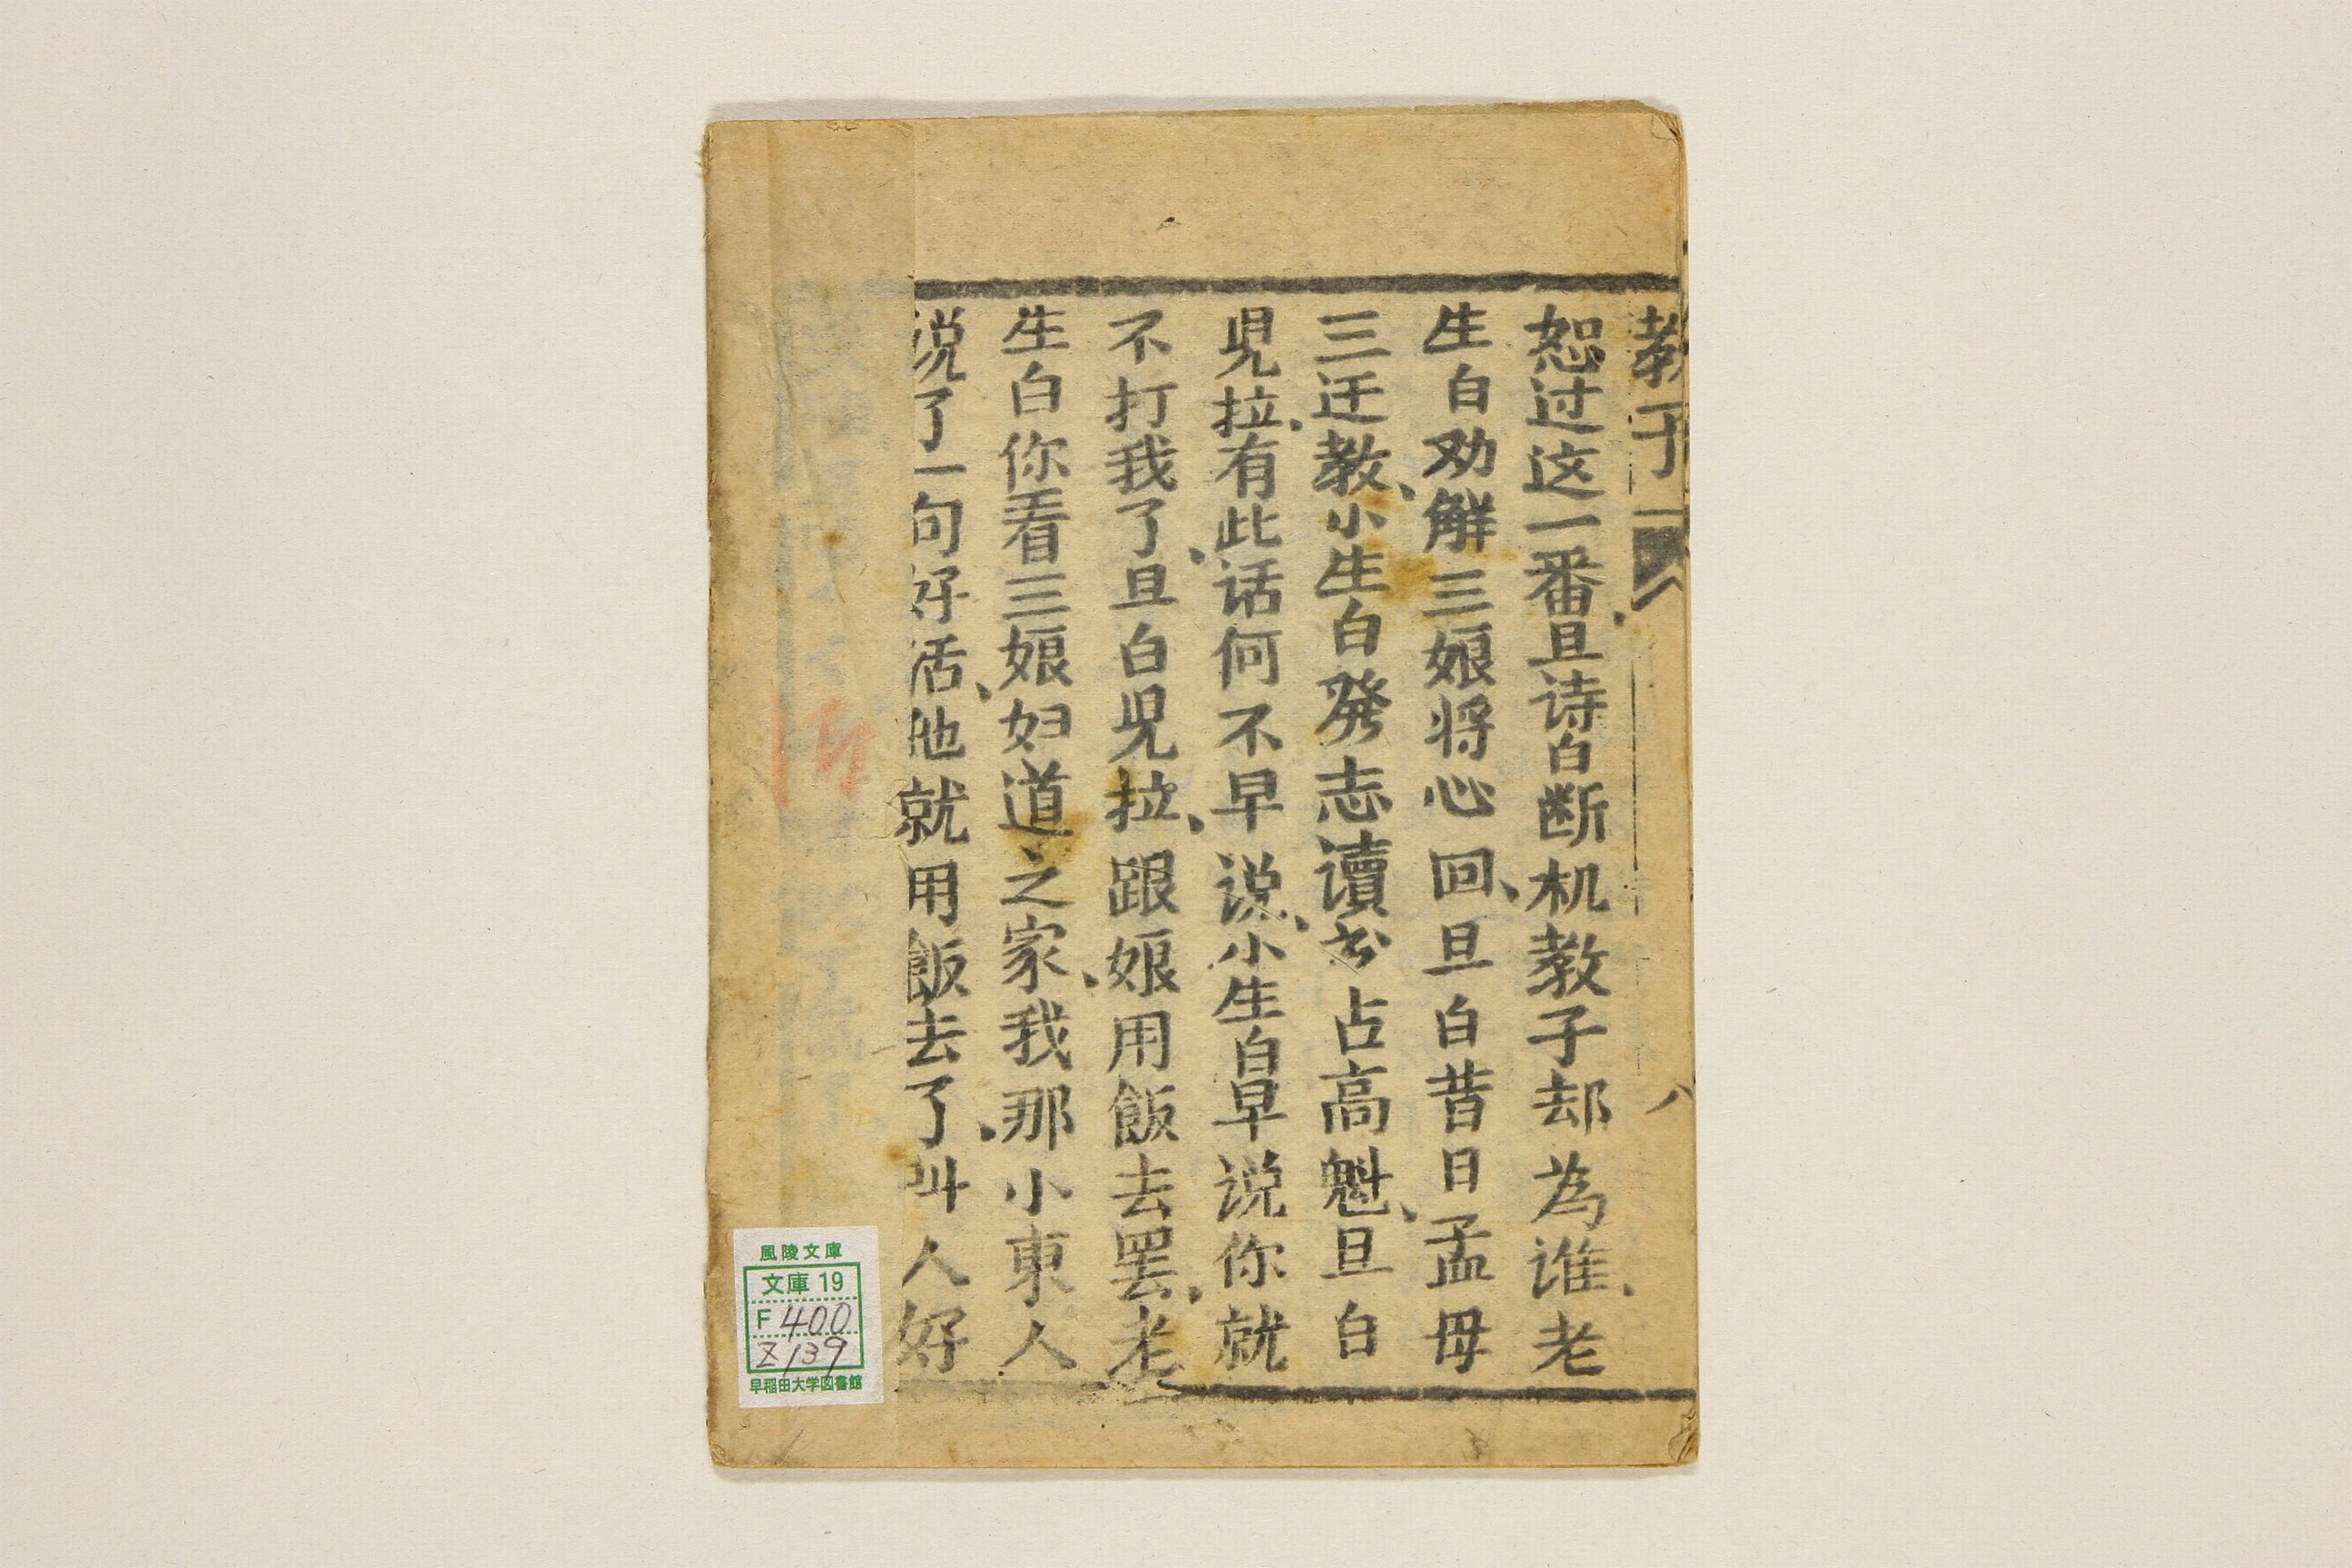 教子
八
恕过这一番旦诗白断机教子却為谁老
生白劝觧三娘将心回旦白昔日孟母
三迁教小生白發志讀书占高魁旦白
児拉有此话何不早说小生白早说你就
不打我了旦白児拉跟娘用飯去罢老
生白你看三娘妇道之家我那小東人
说了一句好活他就用飯去了叫人好
風陵文庫
文庫19
F400
Z139
早稲田大学図書館